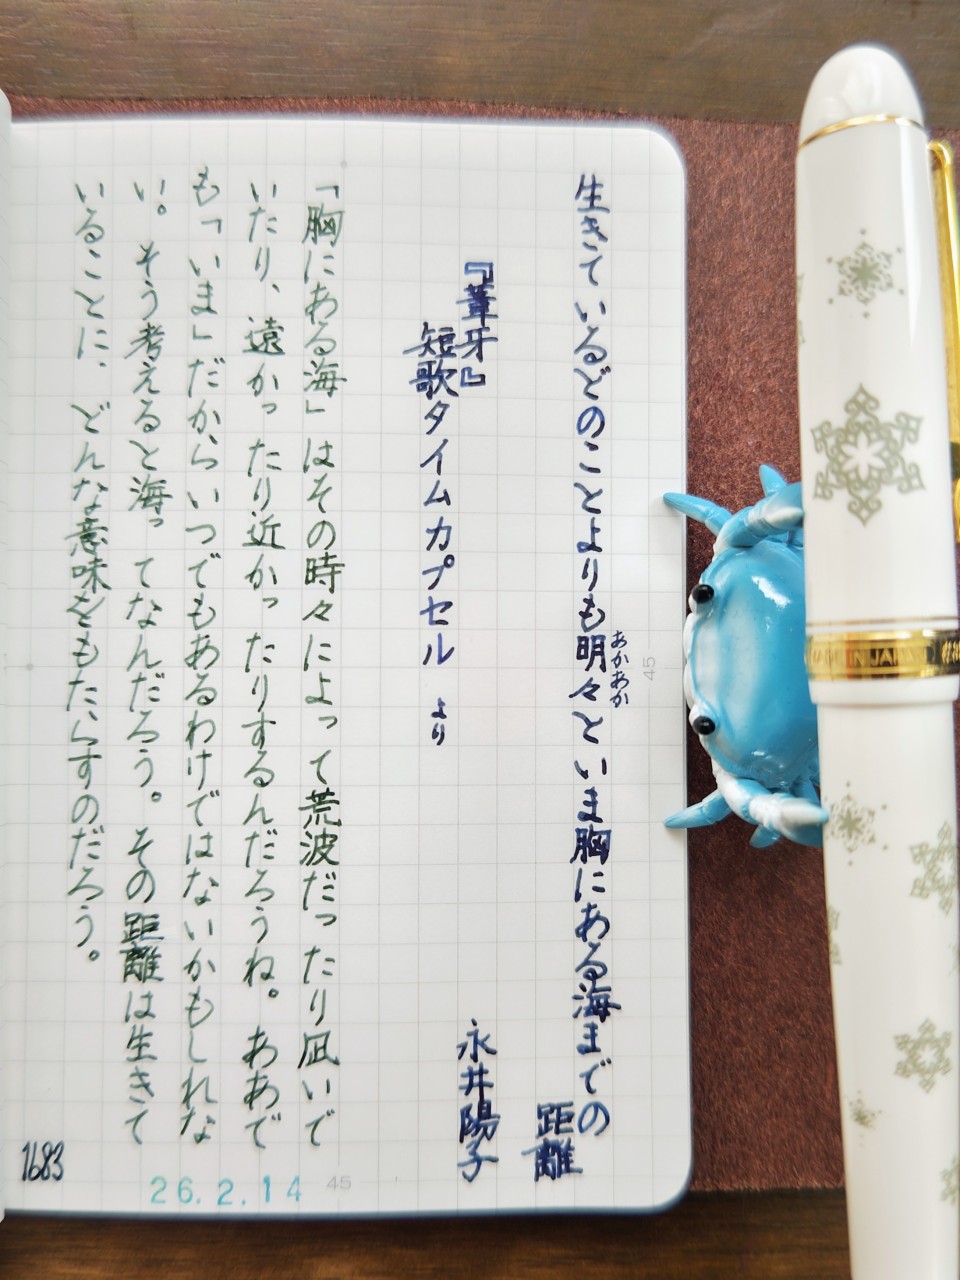 生きているどのことよりも明々といま胸にある海までの
あかあか
距離
『葦牙』
永井陽子
短歌タイムカプセル より
「胸にある海」はその時々によって荒波だったり凪いで
いたり、遠かったり近かったりするんだろうね。ああで
も「いま」だからいつでもあるわけではないかもしれな
い。そう考えると海ってなんだろう。その距離は生きて
いることに、どんな意味をもたらすのだろう。
1683
26.2.14
45
45
MADE IN JAPAN